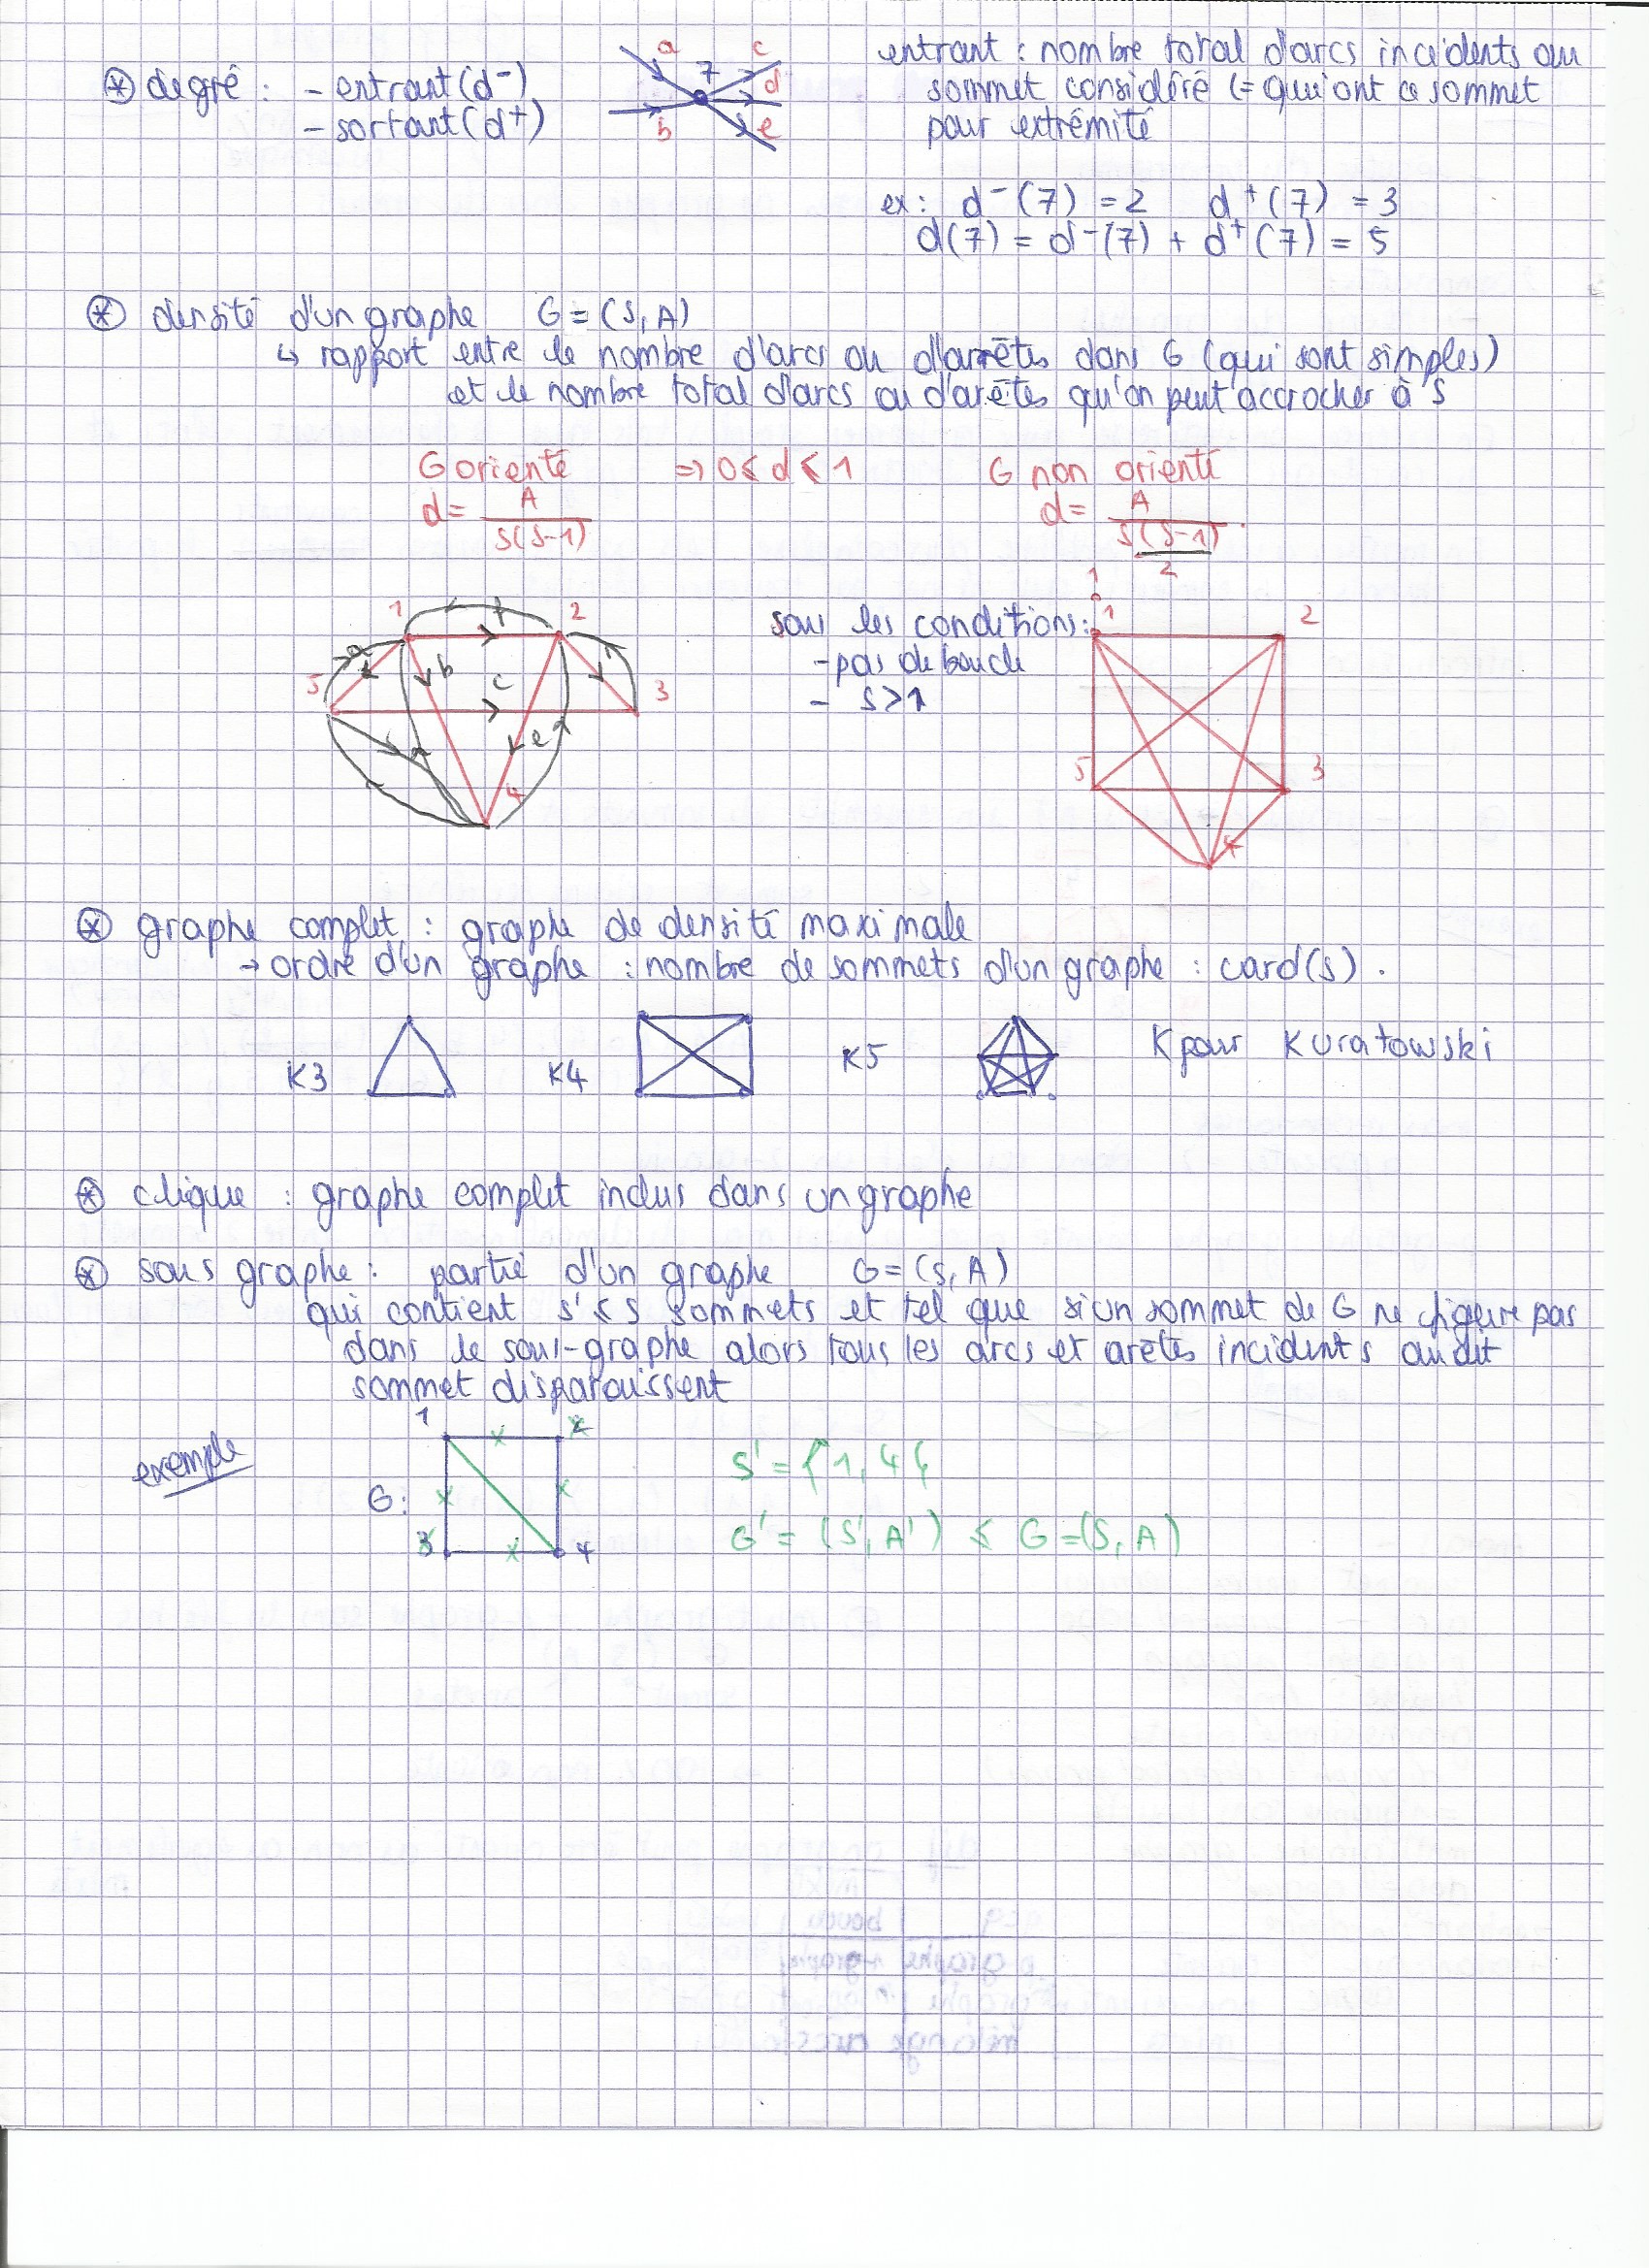 ⊛ degré : - entrant (d⁻)
- sortant (d⁺)
a 7 c d b e
entrant : nombre total d'arcs incidents au
sommet considéré (= qui ont ce sommet
pour extrêmité
ex : d⁻(7) = 2 d⁺(7) = 3
d(7) = d⁻(7) + d⁺(7) = 5
⊛ densité d'un graphe G = (S, A)
↳ rapport entre le nombre d'arcs ou d'arrêtes dans G (qui sont simples)
et le nombre total d'arcs ou d'arêtes qu'on peut accrocher à S
G orienté ⇒ 0 ≤ d ≤ 1 G non orienté
d = A / S(S-1) d = A / S(S-1)/2
1 f 2
5 a b c 3
e
4
sous les conditions :
- pas de boucle
- S > 1
1
1 2
5 3
4
⊛ graphe complet : graphe de densité maximale
→ ordre d'un graphe : nombre de sommets d'un graphe : card(S) .
K3 K4 K5 K pour Kuratowski
⊛ clique : graphe complet inclus dans un graphe
⊛ sous graphe : partie d'un graphe G = (S, A)
qui contient S' ≤ S sommets et tel que si un sommet de G ne figure pas
dans le sous-graphe alors tous les arcs et arêtes incidents audit
sommet disparaissent
exemple
1 2
G :
3 4
S' = {1, 4{
G' = (S', A') ≤ G = (S, A)